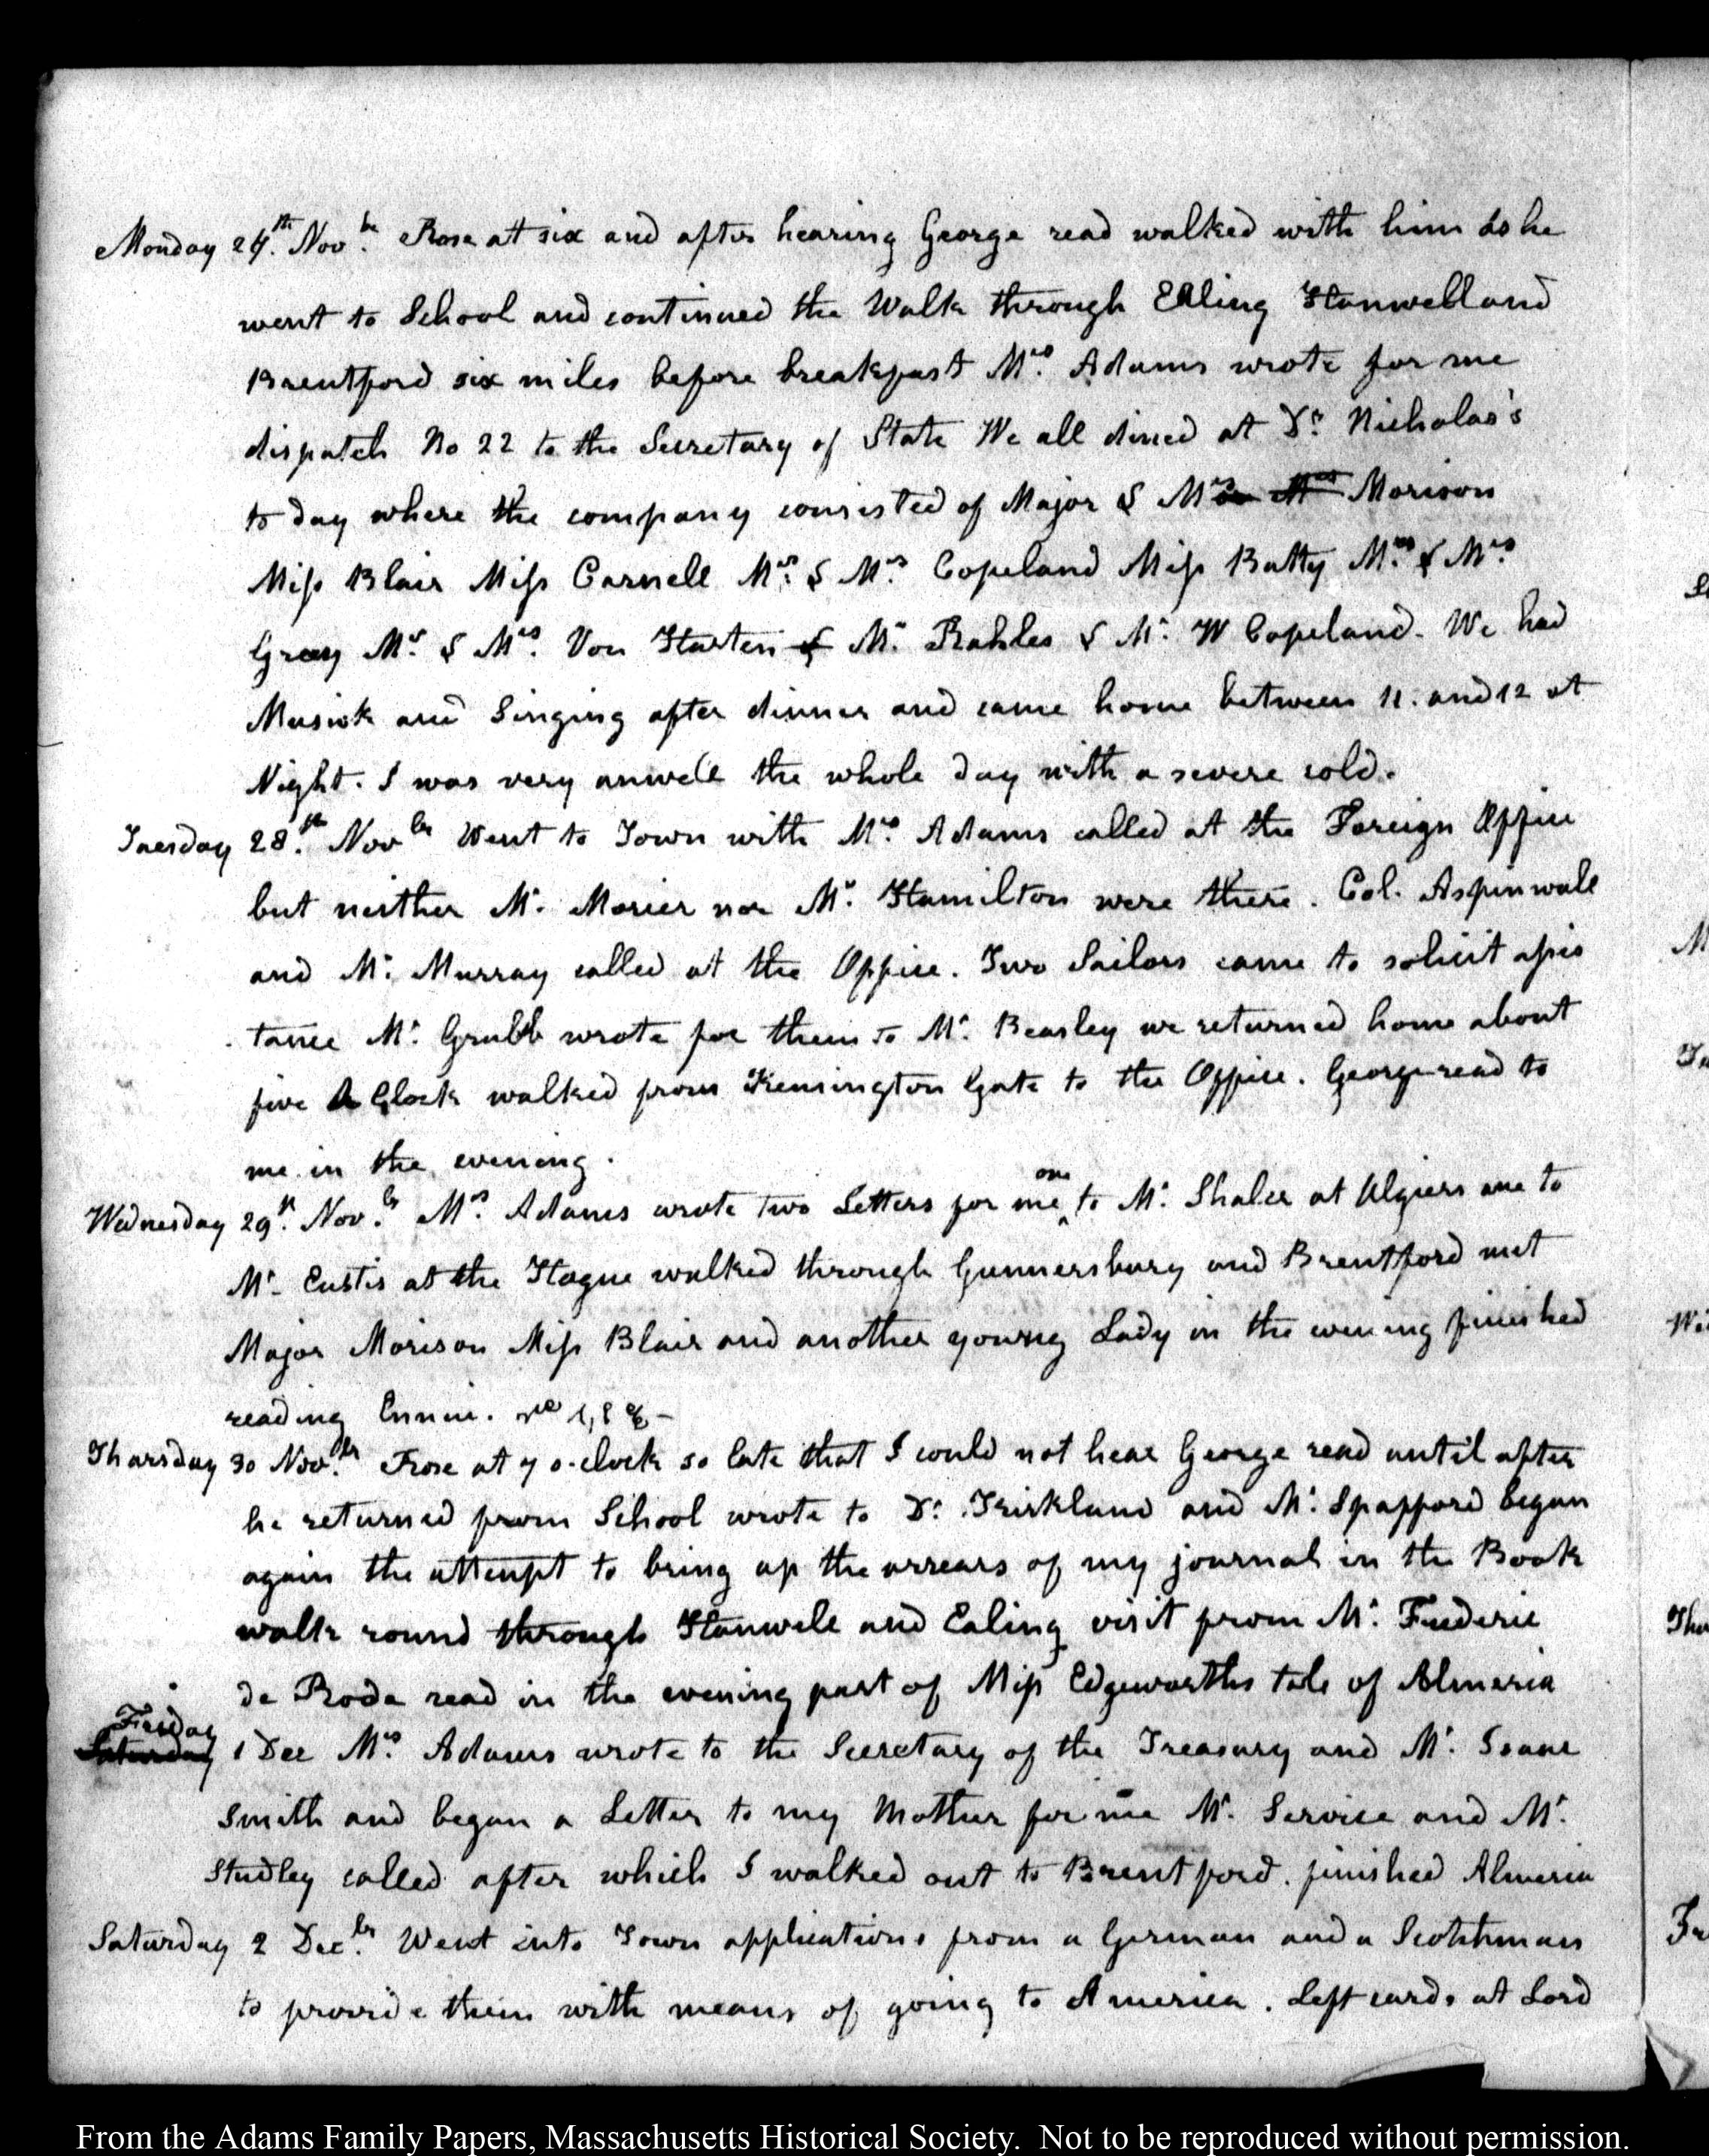 Monday 27.th Nov.br Rose at six and after hearing George read walked with him as he
went to School and continued the Walk through Ealing Hanwell and
Brentford six miles before breakfast Mrs. Adams wrote for me
dispatch No 22 to the Secretary of State We all dined at Dr. Nicholas's
to day where the company consisted of Major & Mrs Morison
Miss Blair Miss Carnell Mr. & Mrs. Copeland Miss Batty Mr. & Mrs.
Gray Mr. & Mrs. Von Harten & Mr. Rahles & Mr. W Copeland. We had
Musick and Singing after dinner and came home between 11. and 12 at
Night. I was very unwell the whole day with a severe cold.
Tuesday 28.th Novbr Went to Town with Mrs. Adams called at the Foreign Office
but neither Mr. Morier nor Mr. Hamilton were there. Col. Aspinwall
and Mr. Murray called at the Office. Two Sailors came to solicit assis
tance Mr. Grubb wrote for them to Mr. Beasley we returned home about
five O Clock walked from Kensington Gate to the Office. George read to
me in the evening.
Wednesday 29.th Nov.br Mrs. Adams wrote two Letters for me one to Mr. Shaler at Algiers one to
Mr. Eustis at the Hague walked through Gunnersbury and Brentford met
Major Morison Miss Blair and another young Lady in the evening finished
reading Ennui.
Thursday 30 Nov.br Rose at 7 o-clock so late that I could not hear George read until after
he returned from School wrote to Dr. Kirkland and Mr. Spafford began
again the attempt to bring up the arrears of my journal in the Book
walk round through Hanwell and Ealing visit from Mr. Frederic
de Rode read in the evening part of Miss Edgeworths tale of Almeria
Friday
Saturday 1 Dec Mrs. Adams wrote to the Secretary of the Treasury and Mr. Isaac
Smith and began a Letter to my Mother for me Mr. Service and Mr.
Studley called after which I walked out to Brentford. finished Almeria
Saturday 2 Dec.br Went into Town applications from a German and a Scotchman
to provide them with means of going to America. Left cards at Lord
From the Adams Family Papers, Massachusetts Historical Society. Not to be reproduced without permission.